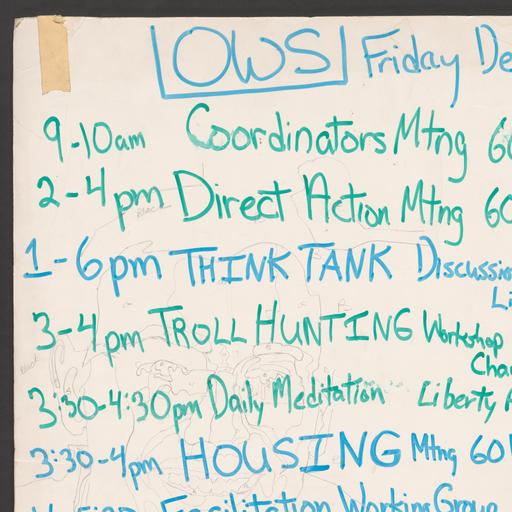 OWS Friday De
9-10am Coordinators Mtng 60
2-4pm Direct Action Mtng 60
1-6pm THINK TANK Discussio
Li
3-4pm TROLL HUNTING Workshop
Cha
3:30-4:30pm Daily Meditation Liberty
3:30-4pm HOUSING Mtng 60
Facilitation Working Group